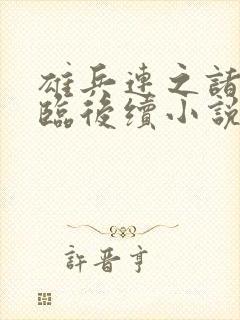 雄兵連之諸
臨後續小說
許晋亨